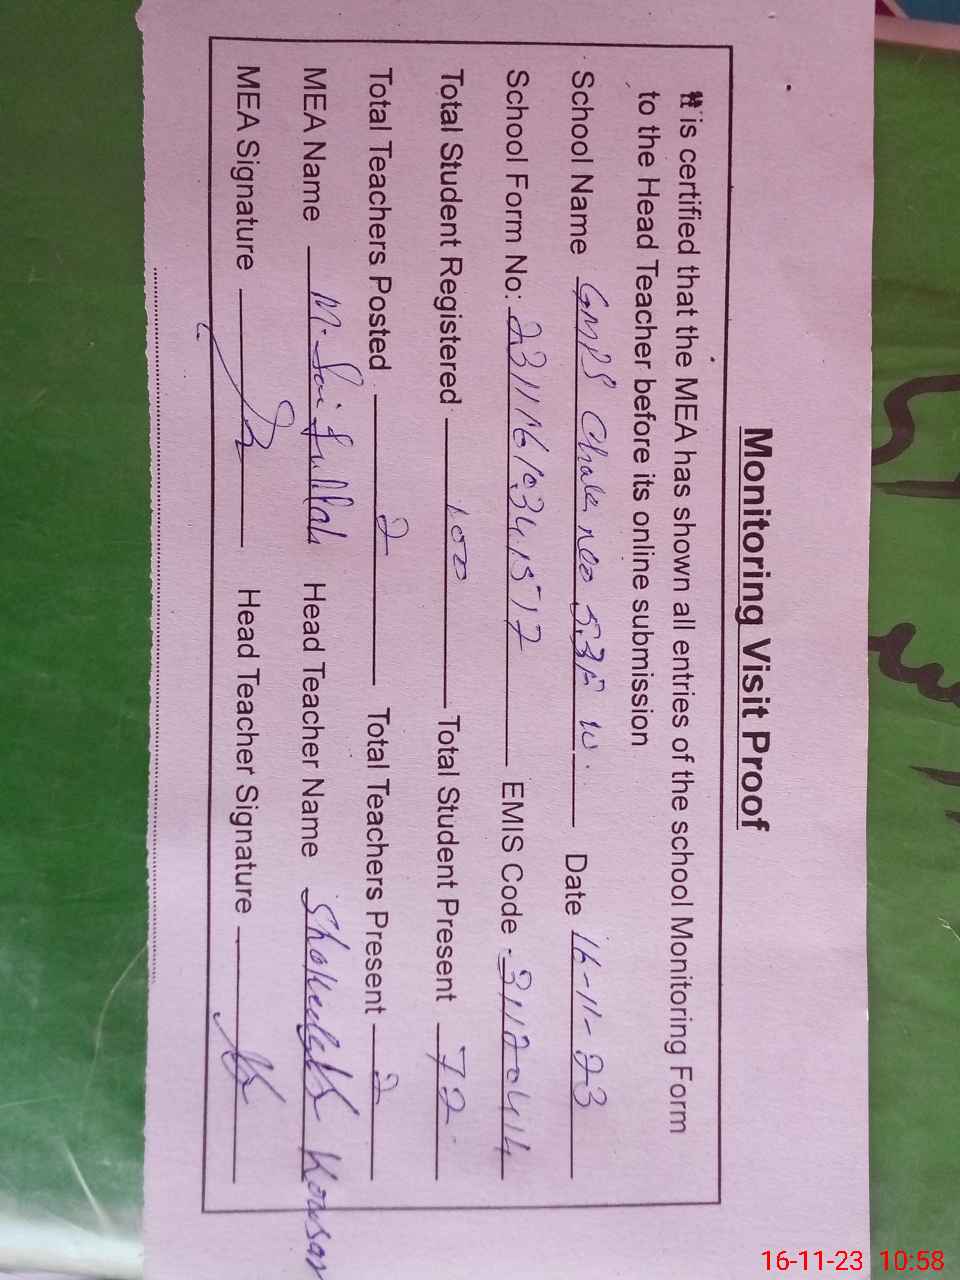 Monitoring Visit Proof
It is certified that the MEA has shown all entries of the school Monitoring Form
to the Head Teacher before its online submission
School Name GMPS Chak no 53F W. Date 16-11-23
School Form No: EMIS Code 31120414
Total Student Registered 100 Total Student Present 72
Total Teachers Posted 2 Total Teachers Present 2
MEA Name M. Saifullah Head Teacher Name Kowsar
MEA Signature Head Teacher Signature
16-11-23 10:58